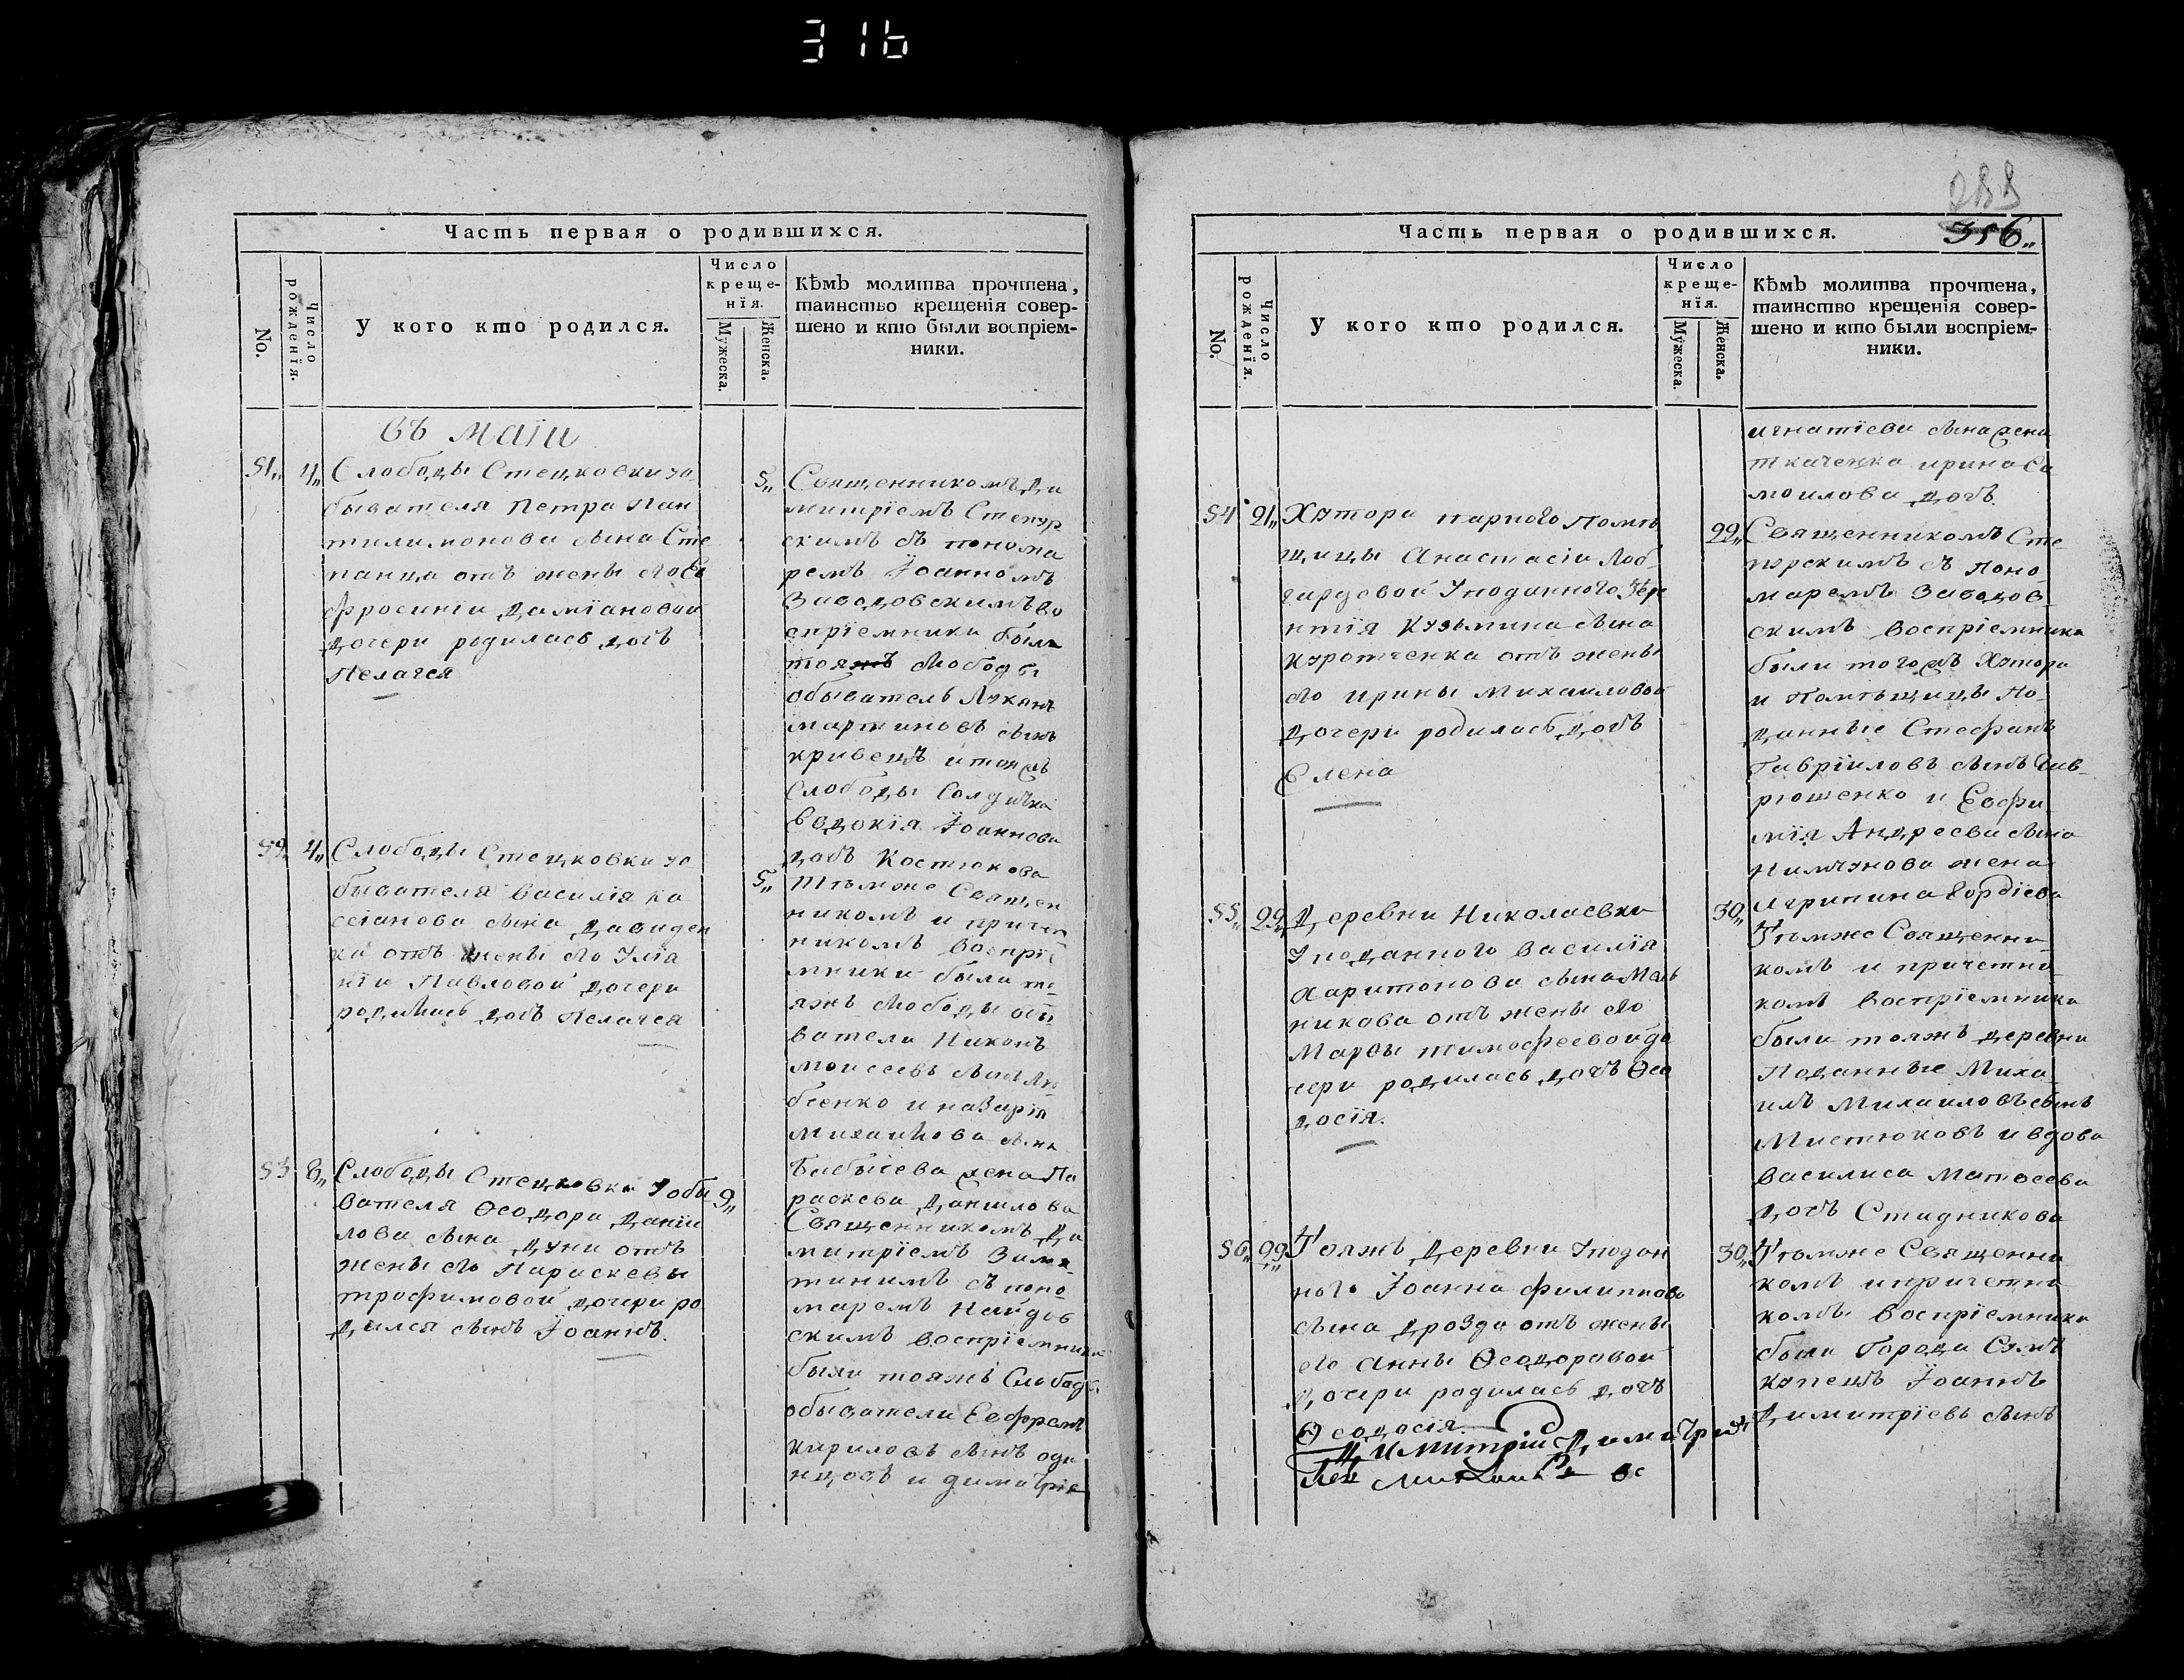 316
Часть первая о родившихся.
No.
Число рожденїя.
У кого кто родился.
Число
креще-
нїя.
Мужеска.
Женска.
Кѣмъ молитва прочтена,
таинство крещенїя совер-
шено и кто были воспрїем-
ники.
въ маїи
51„ 4„ Слободы Стецковки уо
бывателя Петра Пан
тилимонова сына Сте
панца отъ жены его Ев
фросинїи Дамїановой
дочери родилась дочь
Пелагея
5„ Священникомъ Ди
митрїемъ Степур
скимъ съ понома
ремъ Іоанномъ
Заводовскимъ во
спрїемники были
тояжъ слободы
обыватель Лукянъ
мартиновъ сынъ
кривецъ и тояжъ
Слободы Солдатка
Евдокїя Іоаннова
дочь Костюкова
52„ 4„ Слободы Стецковки уо
бывателя василїя ка
сїанова сына Давиден
ка отъ жены его Улїа
нїи Павловой дочери
родилась дочь Пелагея
5„ Тѣмже Священ
никомъ и причет
никомъ воспрїе
мники были то
яжъ слободы обы
ватели Никонъ
моисеевъ сынъ
бченко и назарїя
михаилова сына
жена Па
раскева Данилова
53 8„ Слободы Стецковки уобы
вателя Ѳеодора Данїи
лова сына Дуни отъ
жены его Параскевы
трофимовой дочери ро
дился сынъ Іоаннъ.
9„
Священникомъ Ди
митрїемъ
съ поно
маремъ
скимъ воспрїемники
были тояжъ Слободы
обыватели Евфремъ
кириловъ сынъ оди
нцовъ и димитрїя
Часть первая о родившихся.
288
316„
No.
Число рожденїя.
У кого кто родился.
Число
креще-
нїя.
Мужеска.
Женска.
Кѣмъ молитва прочтена,
таинство крещенїя совер-
шено и кто были воспрїем-
ники.
игнатїева сына жена
ткаченка ирина Са
моилова дочь
54 21„ Хутора парного помѣ
щицы Анастасїи Лоб
гардовой Уподанного Тере
нтїя Кузьмина сына
куротченка отъ жены
его ирины михаиловой
дочери родилась дочь
Елена
22„ Священникомъ Сте
пурскимъ съ поно
маремъ Заводов
скимъ воспрїемники
были того жъ Хутора
и Помѣщицы по
данные Стефанъ
Гаврїиловъ сынъ Гав
рюшенко и Евфи
мїя Андреева сына
жена
Агрипина Гордїева
55„ 29„ Деревни Николаевки
Уподанного василїя
харитонова сына Мель
никова отъ жены его
Марѳы тимофеевой до
чери родилась дочь Ѳео
досїя.
30„ Тѣмже Священни
комъ и причетни
комъ воспрїемники
были тояжъ деревни
Поданные Миха
илъ Михаиловъ сынъ
Мистюковъ и вдова
василиса Матѳеева
дочь Стадникова
56„ 29„ Тояжъ деревни Уподан
ного Іоанна филиппова
сына дрозда отъ жены
его Анны Ѳеодоровой
дочери родилась дочь
Ѳеодосїя.
30„ Тѣмже Священни
комъ и причетни
комъ воспрїемники
были города Сумъ
купецъ Іоаннъ
Димитрїевъ сынъ
Димитрїй Димитрї